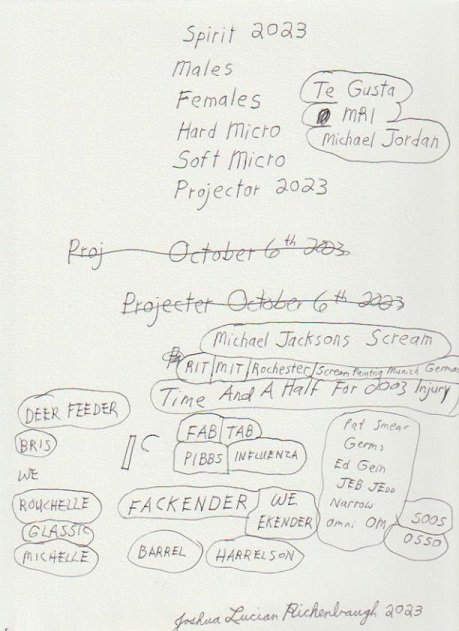 Spirit 2023
Males
Females
Te Gusta
MRI
Hard Micro
Michael Jordan
Soft Micro
Projector 2023
Proj October 6th 2003
Projecter October 6th 2023
Michael Jacksons Scream
RIT MIT Rochester Scream Painting Munich German
Time And A Half For 2003 Injury
DEER FEEDER
BRIS
WE
ROUCHELLE
GLASSIC
MICHELLE
FAB TAB
PIBBS INFLUENZA
FACKENDER WE
EKENDER
BARREL HARRELSON
Pat Smear
Germs
Ed Gein
JEB JEDD
Narrow
Omni OM
SOOS
OSSO
Joshua Lucian Richenbaugh 2023